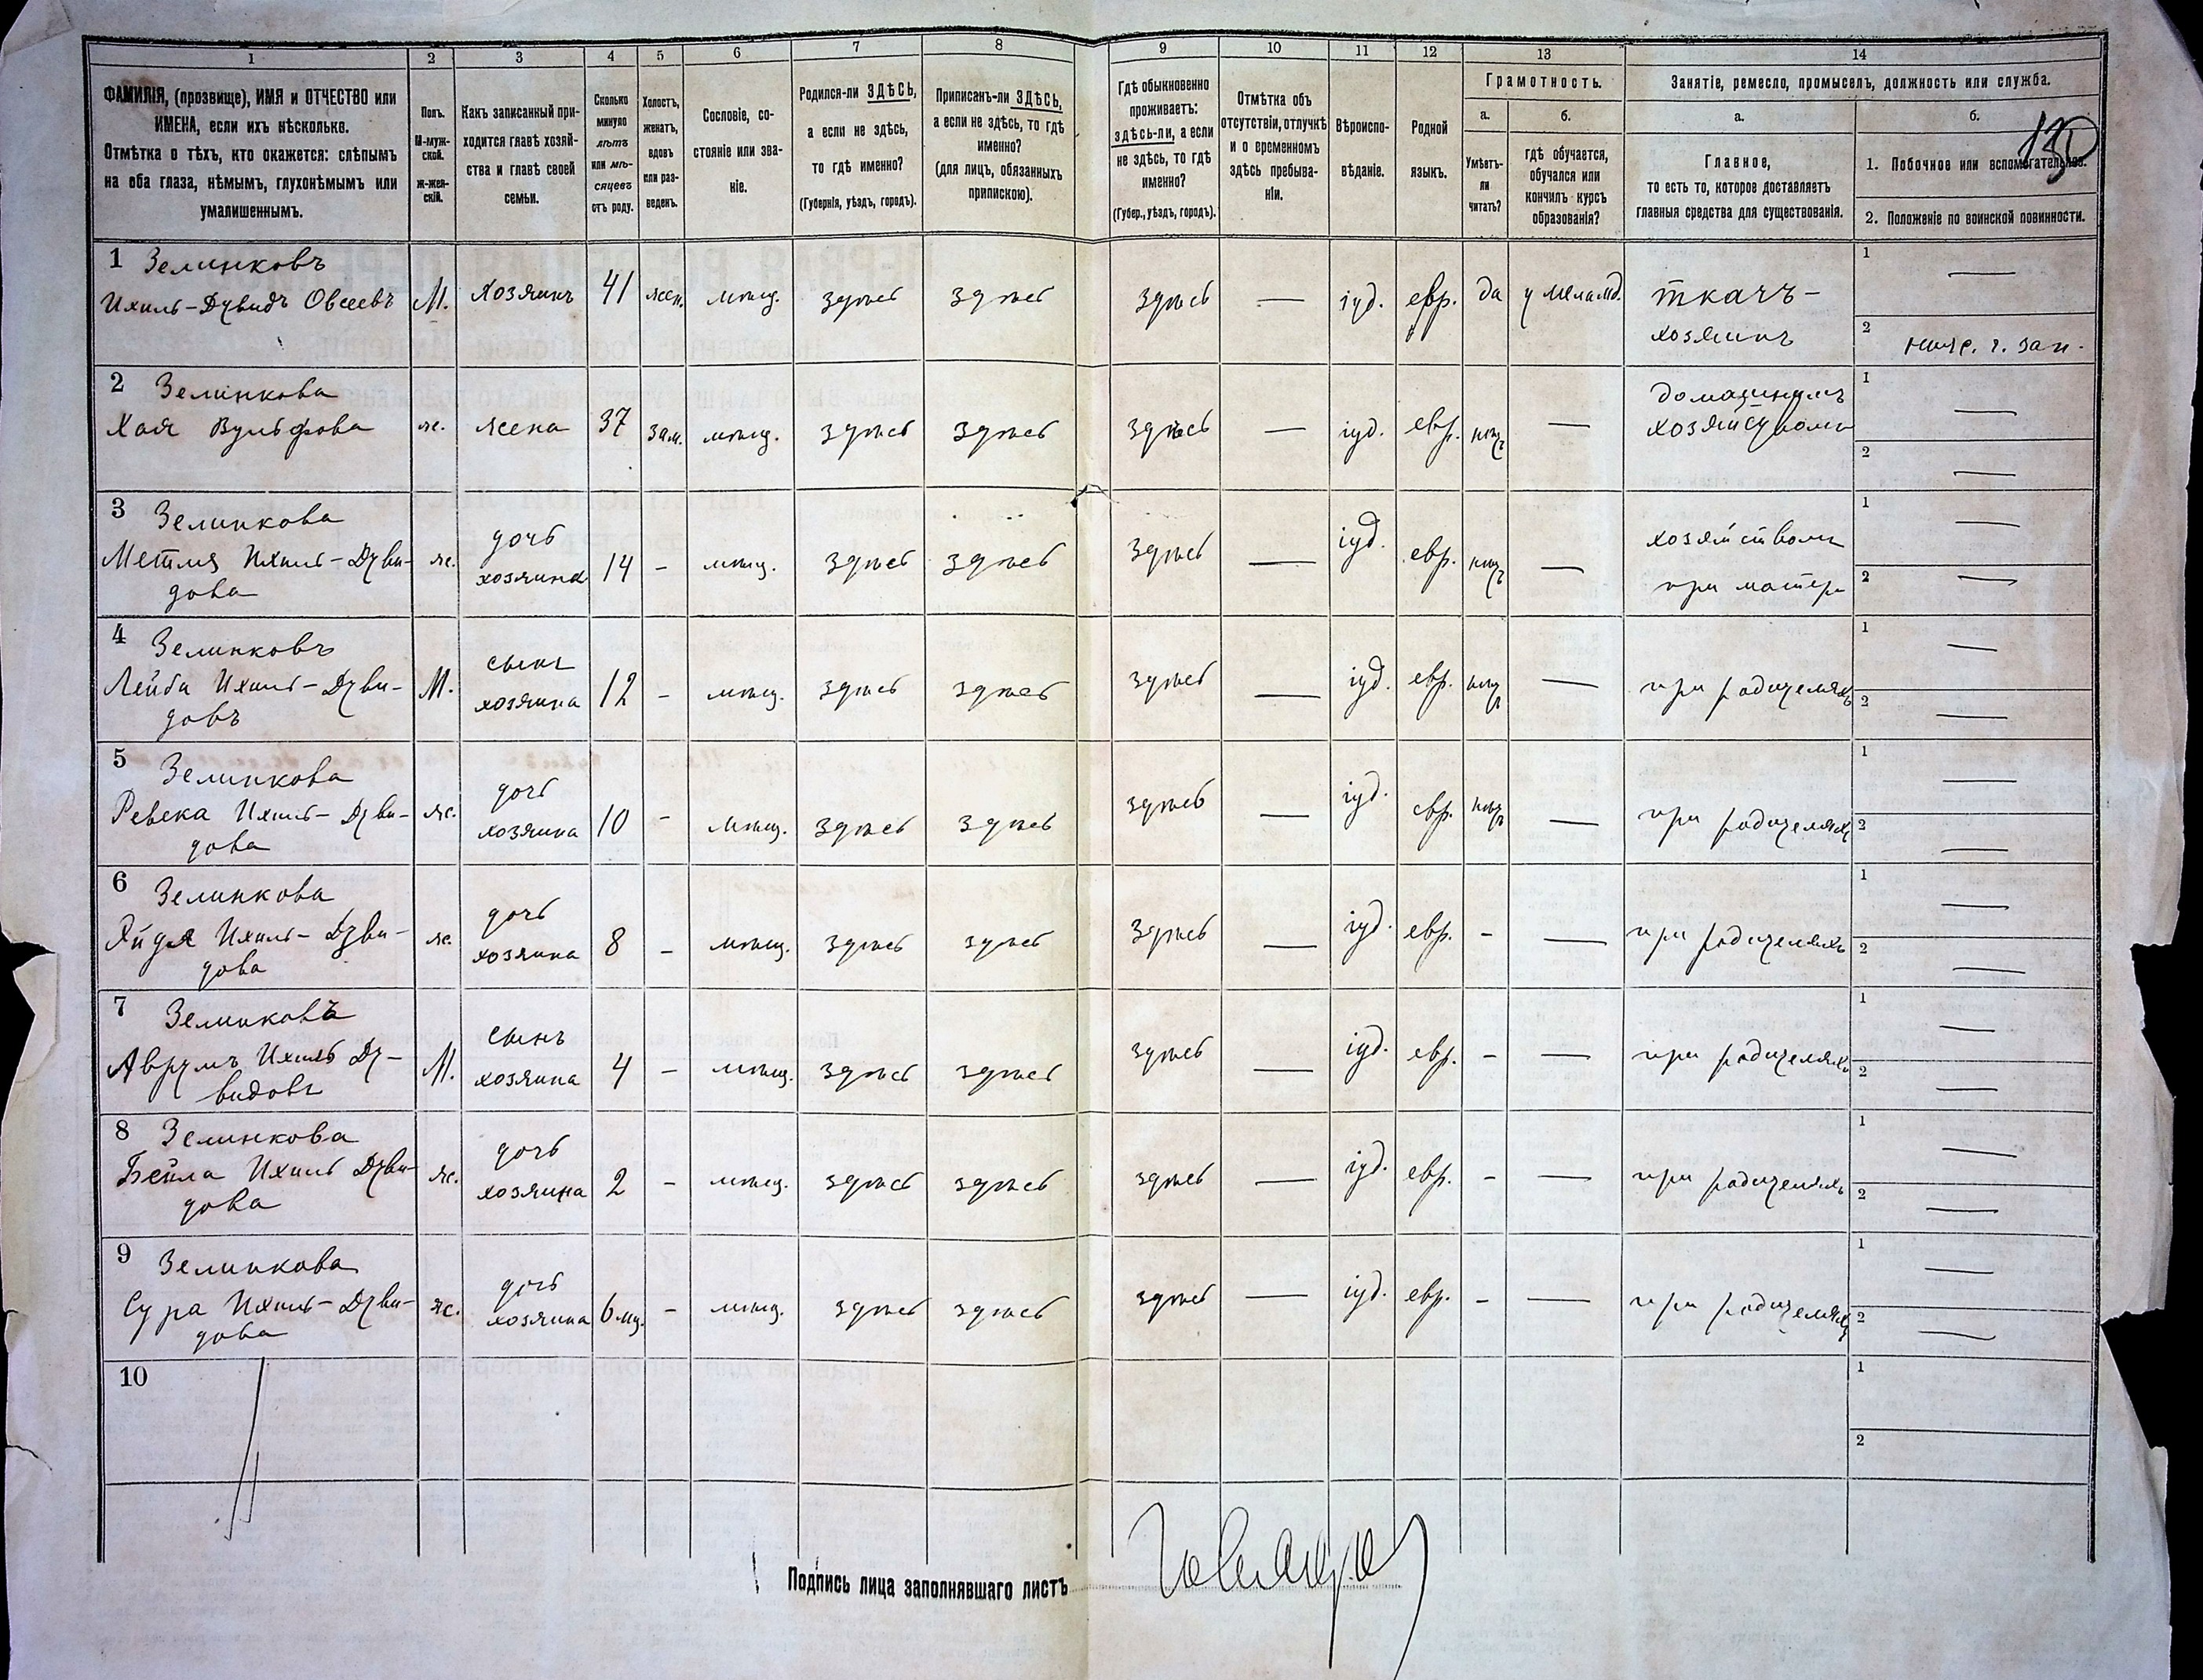 1 2 3 4 5 6 7 8 9 10 11 12 13 14
ФАМИЛІЯ, (прозвище), ИМЯ и ОТЧЕСТВО или
ИМЕНА, если ихъ нѣсколько.
Отмѣтка о тѣхъ, кто окажется: слѣпымъ
на оба глаза, нѣмымъ, глухонѣмымъ или
умалишеннымъ.
Полъ.
М-муж-
ской.
ж-жен-
скій.
Какъ записанный при-
ходится главѣ хозяй-
ства и главѣ своей
семьи.
Сколько
минуло
лѣтъ
или мѣ-
сяцевъ
отъ роду.
Холостъ,
женатъ,
вдовъ
или раз-
веденъ.
Сословіе, со-
стояніе или зва-
ніе.
Родился-ли ЗДѢСЬ,
а если не здѣсь,
то гдѣ именно?
(Губернія, уѣздъ, городъ).
Приписанъ-ли ЗДѢСЬ,
а если не здѣсь, то гдѣ
именно?
(для лицъ, обязанныхъ
припискою).
Гдѣ обыкновенно
проживаетъ:
здѣсь-ли, а если
не здѣсь, то гдѣ
именно?
(Губер., уѣздъ, городъ).
Отмѣтка объ
отсутствіи, отлучкѣ
и о временномъ
здѣсь пребыва-
ніи.
Вѣроиспо-
вѣданіе.
Родной
языкъ.
Грамотность.
а.
Умѣетъ-
ли
читать?
б.
гдѣ обучается,
обучался или
кончилъ курсъ
образованія?
Занятіе, ремесло, промыселъ, должность или служба.
а.
Главное,
то есть то, которое доставляетъ
главныя средства для существованія.
б.
1. Побочное или вспомогательное.
2. Положеніе по воинской повинности.
1 Зелинковъ
Ихиль-Дувидъ Овсеевъ М. Хозяинъ 41 жен. мѣщ. здѣсь здѣсь здѣсь — іуд. евр. да у мелам. ткачъ-
хозяинъ
1 —
2
2 Зелинкова
Хая Вульфова ж. жена 37 зам. мѣщ. здѣсь здѣсь здѣсь — іуд. евр. нѣтъ — домашнимъ
хозяйствомъ
1 —
2 —
3 Зелинкова
Метля Ихиль-Дуви-
дова ж. дочь
хозяина 14 - мѣщ. здѣсь здѣсь здѣсь — іуд. евр. нѣтъ — хозяйствомъ
при матери
1 —
2 —
4 Зелинковъ
Лейба Ихиль-Дуви-
довъ М. сынъ
хозяина 12 - мѣщ. здѣсь здѣсь здѣсь — іуд. евр. нѣтъ — при родителяхъ
1 —
2 —
5 Зелинкова
Ревека Ихиль-Дуви-
дова ж. дочь
хозяина 10 - мѣщ. здѣсь здѣсь здѣсь — іуд. евр. нѣтъ — при родителяхъ
1 —
2 —
6 Зелинкова
Ихиль-Дуви-
дова ж. дочь
хозяина 8 - мѣщ. здѣсь здѣсь здѣсь — іуд. евр. - — при родителяхъ
1 —
2 —
7 Зелинковъ
Аврумъ Ихиль Ду-
видовъ М. сынъ
хозяина 4 - мѣщ. здѣсь здѣсь здѣсь — іуд. евр. - — при родителяхъ
1 —
2 —
8 Зелинкова
Бейла Ихиль Дуви-
дова ж. дочь
хозяина 2 - мѣщ. здѣсь здѣсь здѣсь — іуд. евр. - — при родителяхъ
1 —
2 —
9 Зелинкова
Сура Ихиль-Дуви-
дова ж. дочь
хозяина 6 мц. - мѣщ. здѣсь здѣсь здѣсь — іуд. евр. - — при родителяхъ
1 —
2 —
10
1
2
Подпись лица заполнявшаго листъ